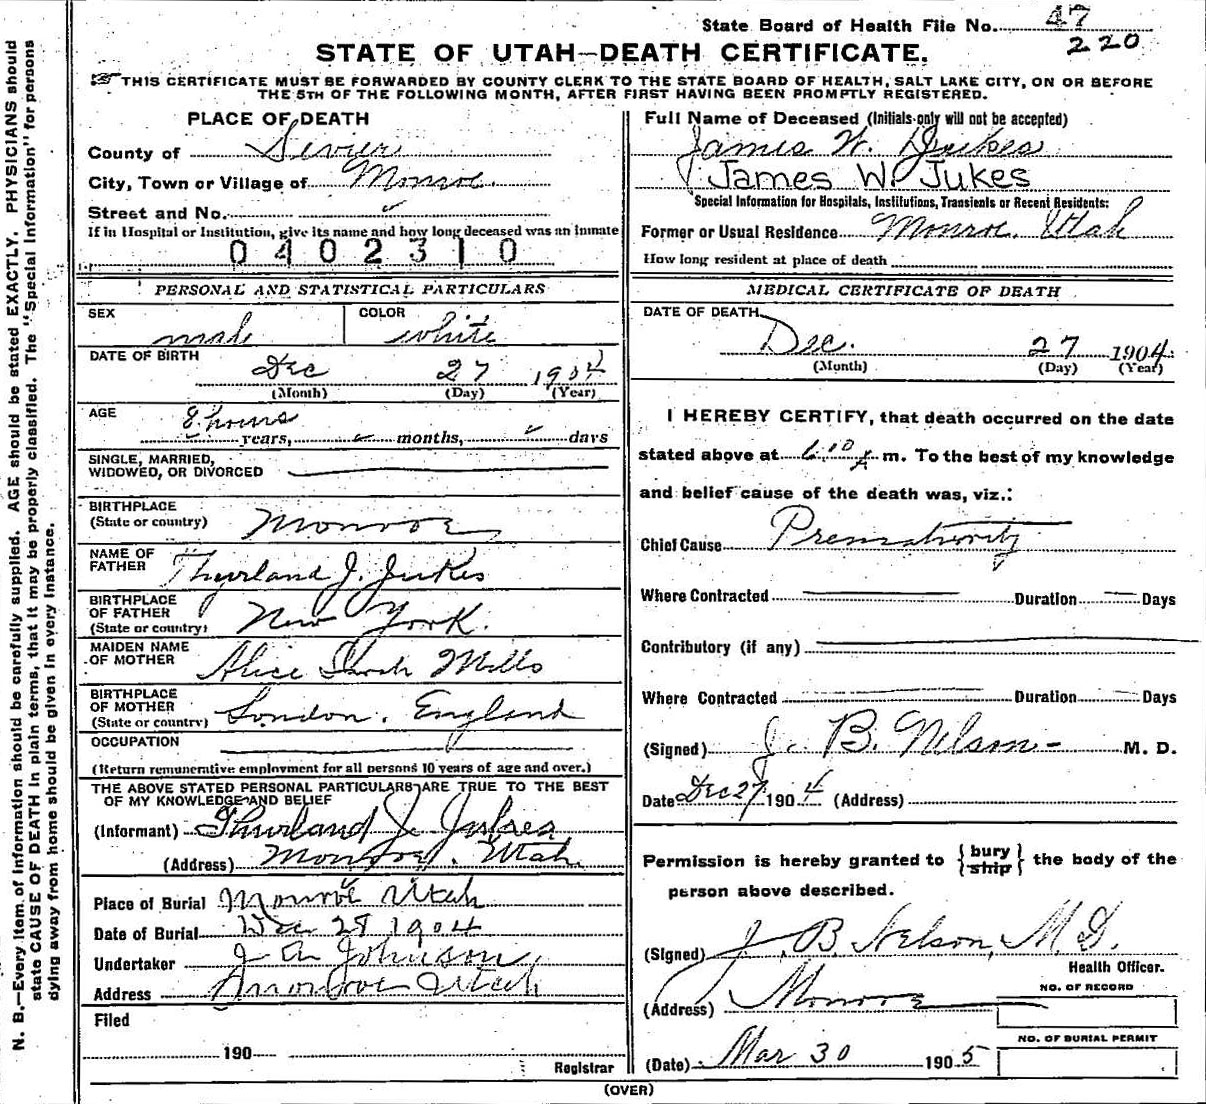 State Board of Health File No. 47
220
STATE OF UTAH—DEATH CERTIFICATE.
THIS CERTIFICATE MUST BE FORWARDED BY COUNTY CLERK TO THE STATE BOARD OF HEALTH, SALT LAKE CITY, ON OR BEFORE
THE 5TH OF THE FOLLOWING MONTH, AFTER FIRST HAVING BEEN PROMPTLY REGISTERED.
N. B.—Every item of information should be carefully supplied. AGE should be stated EXACTLY. PHYSICIANS should
state CAUSE OF DEATH in plain terms, that it may be properly classified. The "Special Information" for persons
dying away from home should be given in every instance.
PLACE OF DEATH
County of Sevier
City, Town or Village of Monroe
Street and No.
If in Hospital or Institution, give its name and how long deceased was an inmate
0402310
PERSONAL AND STATISTICAL PARTICULARS
SEX male COLOR white
DATE OF BIRTH
Dec 27 1904
(Month) (Day) (Year)
AGE
8 hours
years, months, days
SINGLE, MARRIED,
WIDOWED, OR DIVORCED
BIRTHPLACE
(State or country) Monroe
NAME OF
FATHER Thurland J. Jukes
BIRTHPLACE
OF FATHER
(State or country) New York.
MAIDEN NAME
OF MOTHER Alice Sarah Mills
BIRTHPLACE
OF MOTHER
(State or country) London, England
OCCUPATION
(Return remunerative employment for all persons 10 years of age and over.)
THE ABOVE STATED PERSONAL PARTICULARS ARE TRUE TO THE BEST
OF MY KNOWLEDGE AND BELIEF
(Informant) Thurland J. Jukes
(Address) Monroe, Utah
Place of Burial Monroe Utah
Date of Burial Dec 28 1904
Undertaker J A Johnson
Address Monroe Utah
Filed
190
Registrar
Full Name of Deceased (Initials only will not be accepted)
James W. Jukes
James W. Jukes
Special Information for Hospitals, Institutions, Transients or Recent Residents:
Former or Usual Residence Monroe, Utah
How long resident at place of death
MEDICAL CERTIFICATE OF DEATH
DATE OF DEATH
Dec. 27 1904
(Month) (Day) (Year)
I HEREBY CERTIFY, that death occurred on the date
stated above at 6:10 m. To the best of my knowledge
and belief cause of the death was, viz.:
Chief Cause Prematurity
Where Contracted Duration Days
Contributory (if any)
Where Contracted Duration Days
(Signed) J. B. Nelson M. D.
Date Dec 27 1904 (Address)
Permission is hereby granted to {bury ship} the body of the
person above described.
(Signed) J. B. Nelson, M D.
Health Officer.
(Address) Monroe
NO. OF RECORD
NO. OF BURIAL PERMIT
(Date) Mar 30 1905
(OVER)